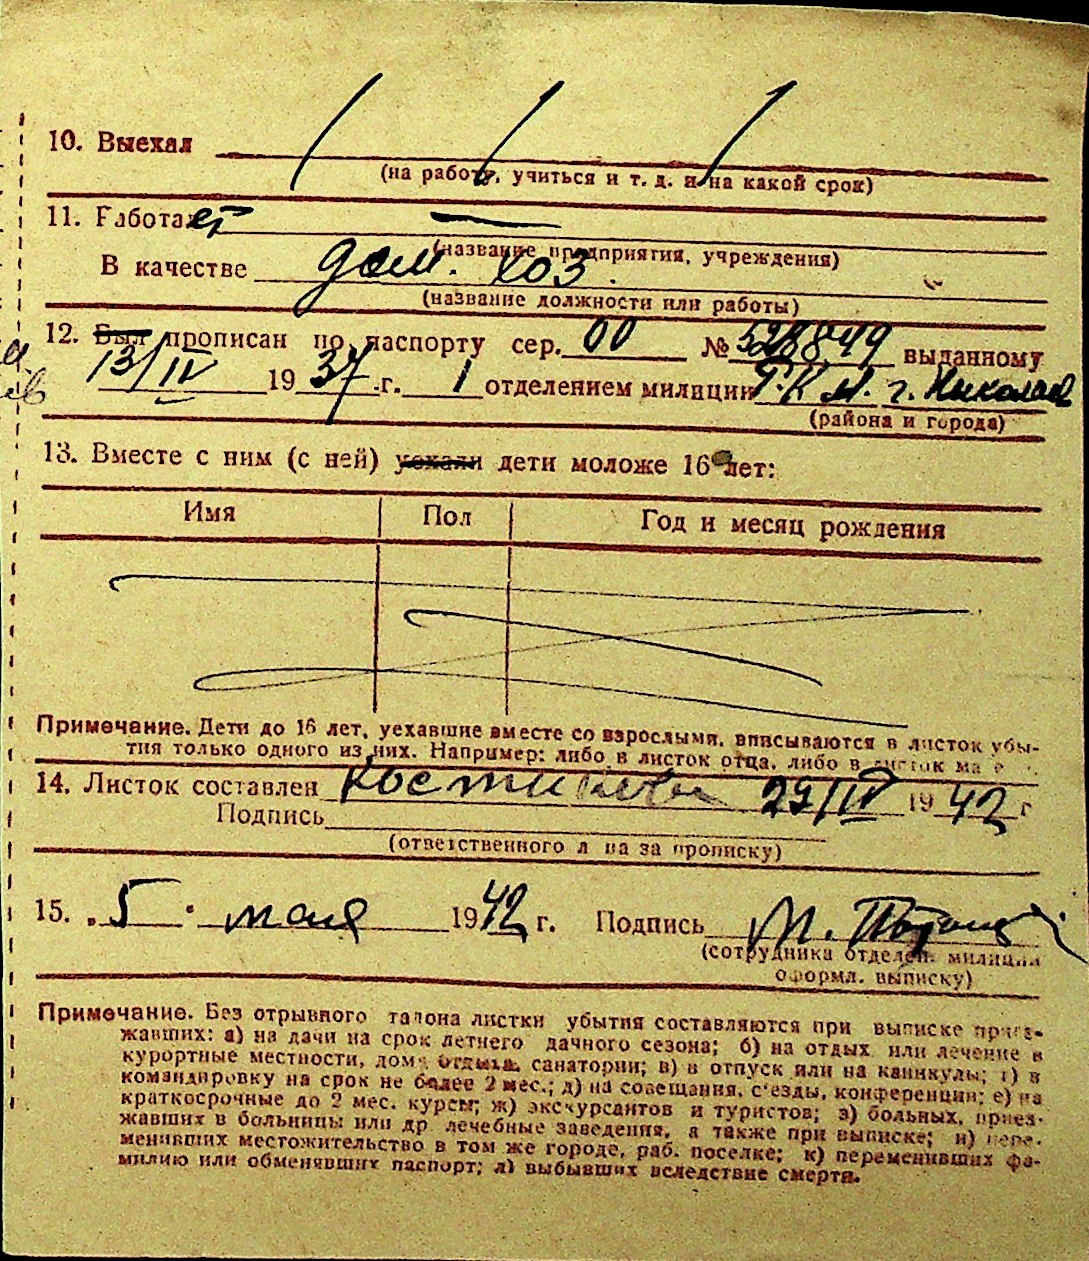 10. Выехал
(на работу, учиться и т. д. и на какой срок)
11. Работает —
(название предприятия, учреждения)
В качестве дом. хоз.
(название должности или работы)
12. Был прописан по паспорту сер. 00 № 528849 выданному
13/IV 1937 г. 1 отделением милиции Р.К.М. г. Николаев
(района и города)
13. Вместе с ним (с ней) уехали дети моложе 16 лет:
Имя Пол Год и месяц рождения
Примечание. Дети до 16 лет, уехавшие вместе со взрослыми, вписываются в листок убы-
тия только одного из них. Например: либо в листок отца, либо в листок ма
14. Листок составлен 29/IV 1942 г
Подпись
(ответственного лица за прописку)
15. „5“ мая 1942 г. Подпись М.
(сотрудника отделен. милиции
оформл. выписку)
Примечание. Без отрывного талона листки убытия составляются при выписке приез-
жавших: а) на дачи на срок летнего дачного сезона; б) на отдых или лечение в
курортные местности, дома отдыха, санатории; в) в отпуск или на каникулы; г) в
командировку на срок не более 2 мес.; д) на совещания, с'езды, конференции; е) на
краткосрочные до 2 мес. курсы; ж) экскурсантов и туристов; з) больных, приез-
жавших в больницы или др лечебные заведения, а также при выписке; и) пере-
менивших местожительство в том же городе, раб. поселке; к) переменивших фа-
милию или обменявших паспорт; л) выбывших вследствие смерти.